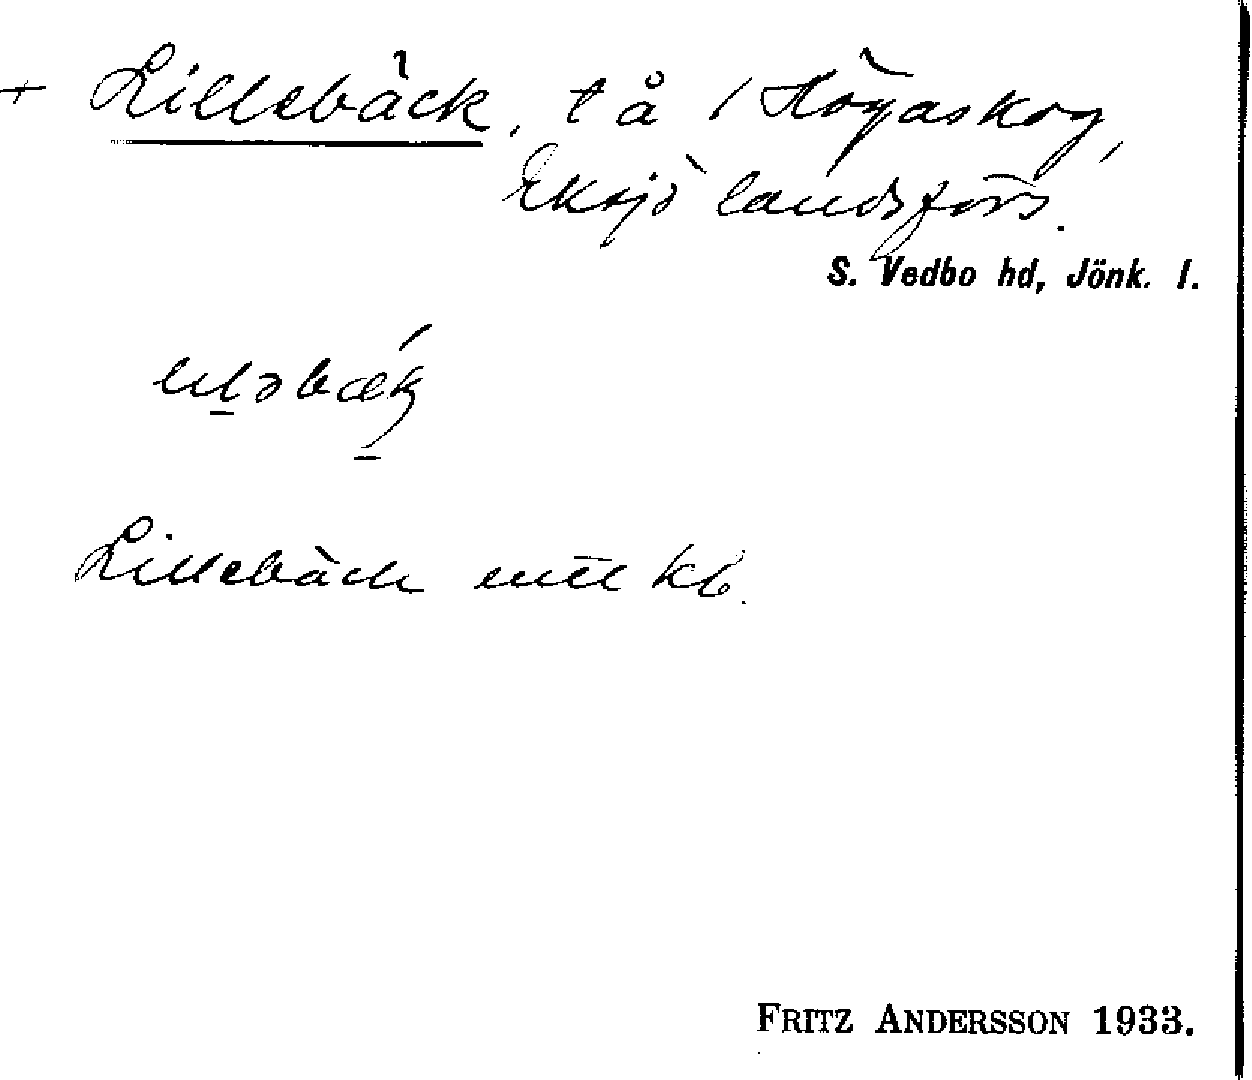 + Lillebäck, t å / Högaskog,
Eksjö landsförs.
S. Vedbo hd, Jönk. l.
Lillebäck enl kb.
FRITZ ANDERSSON 1933.